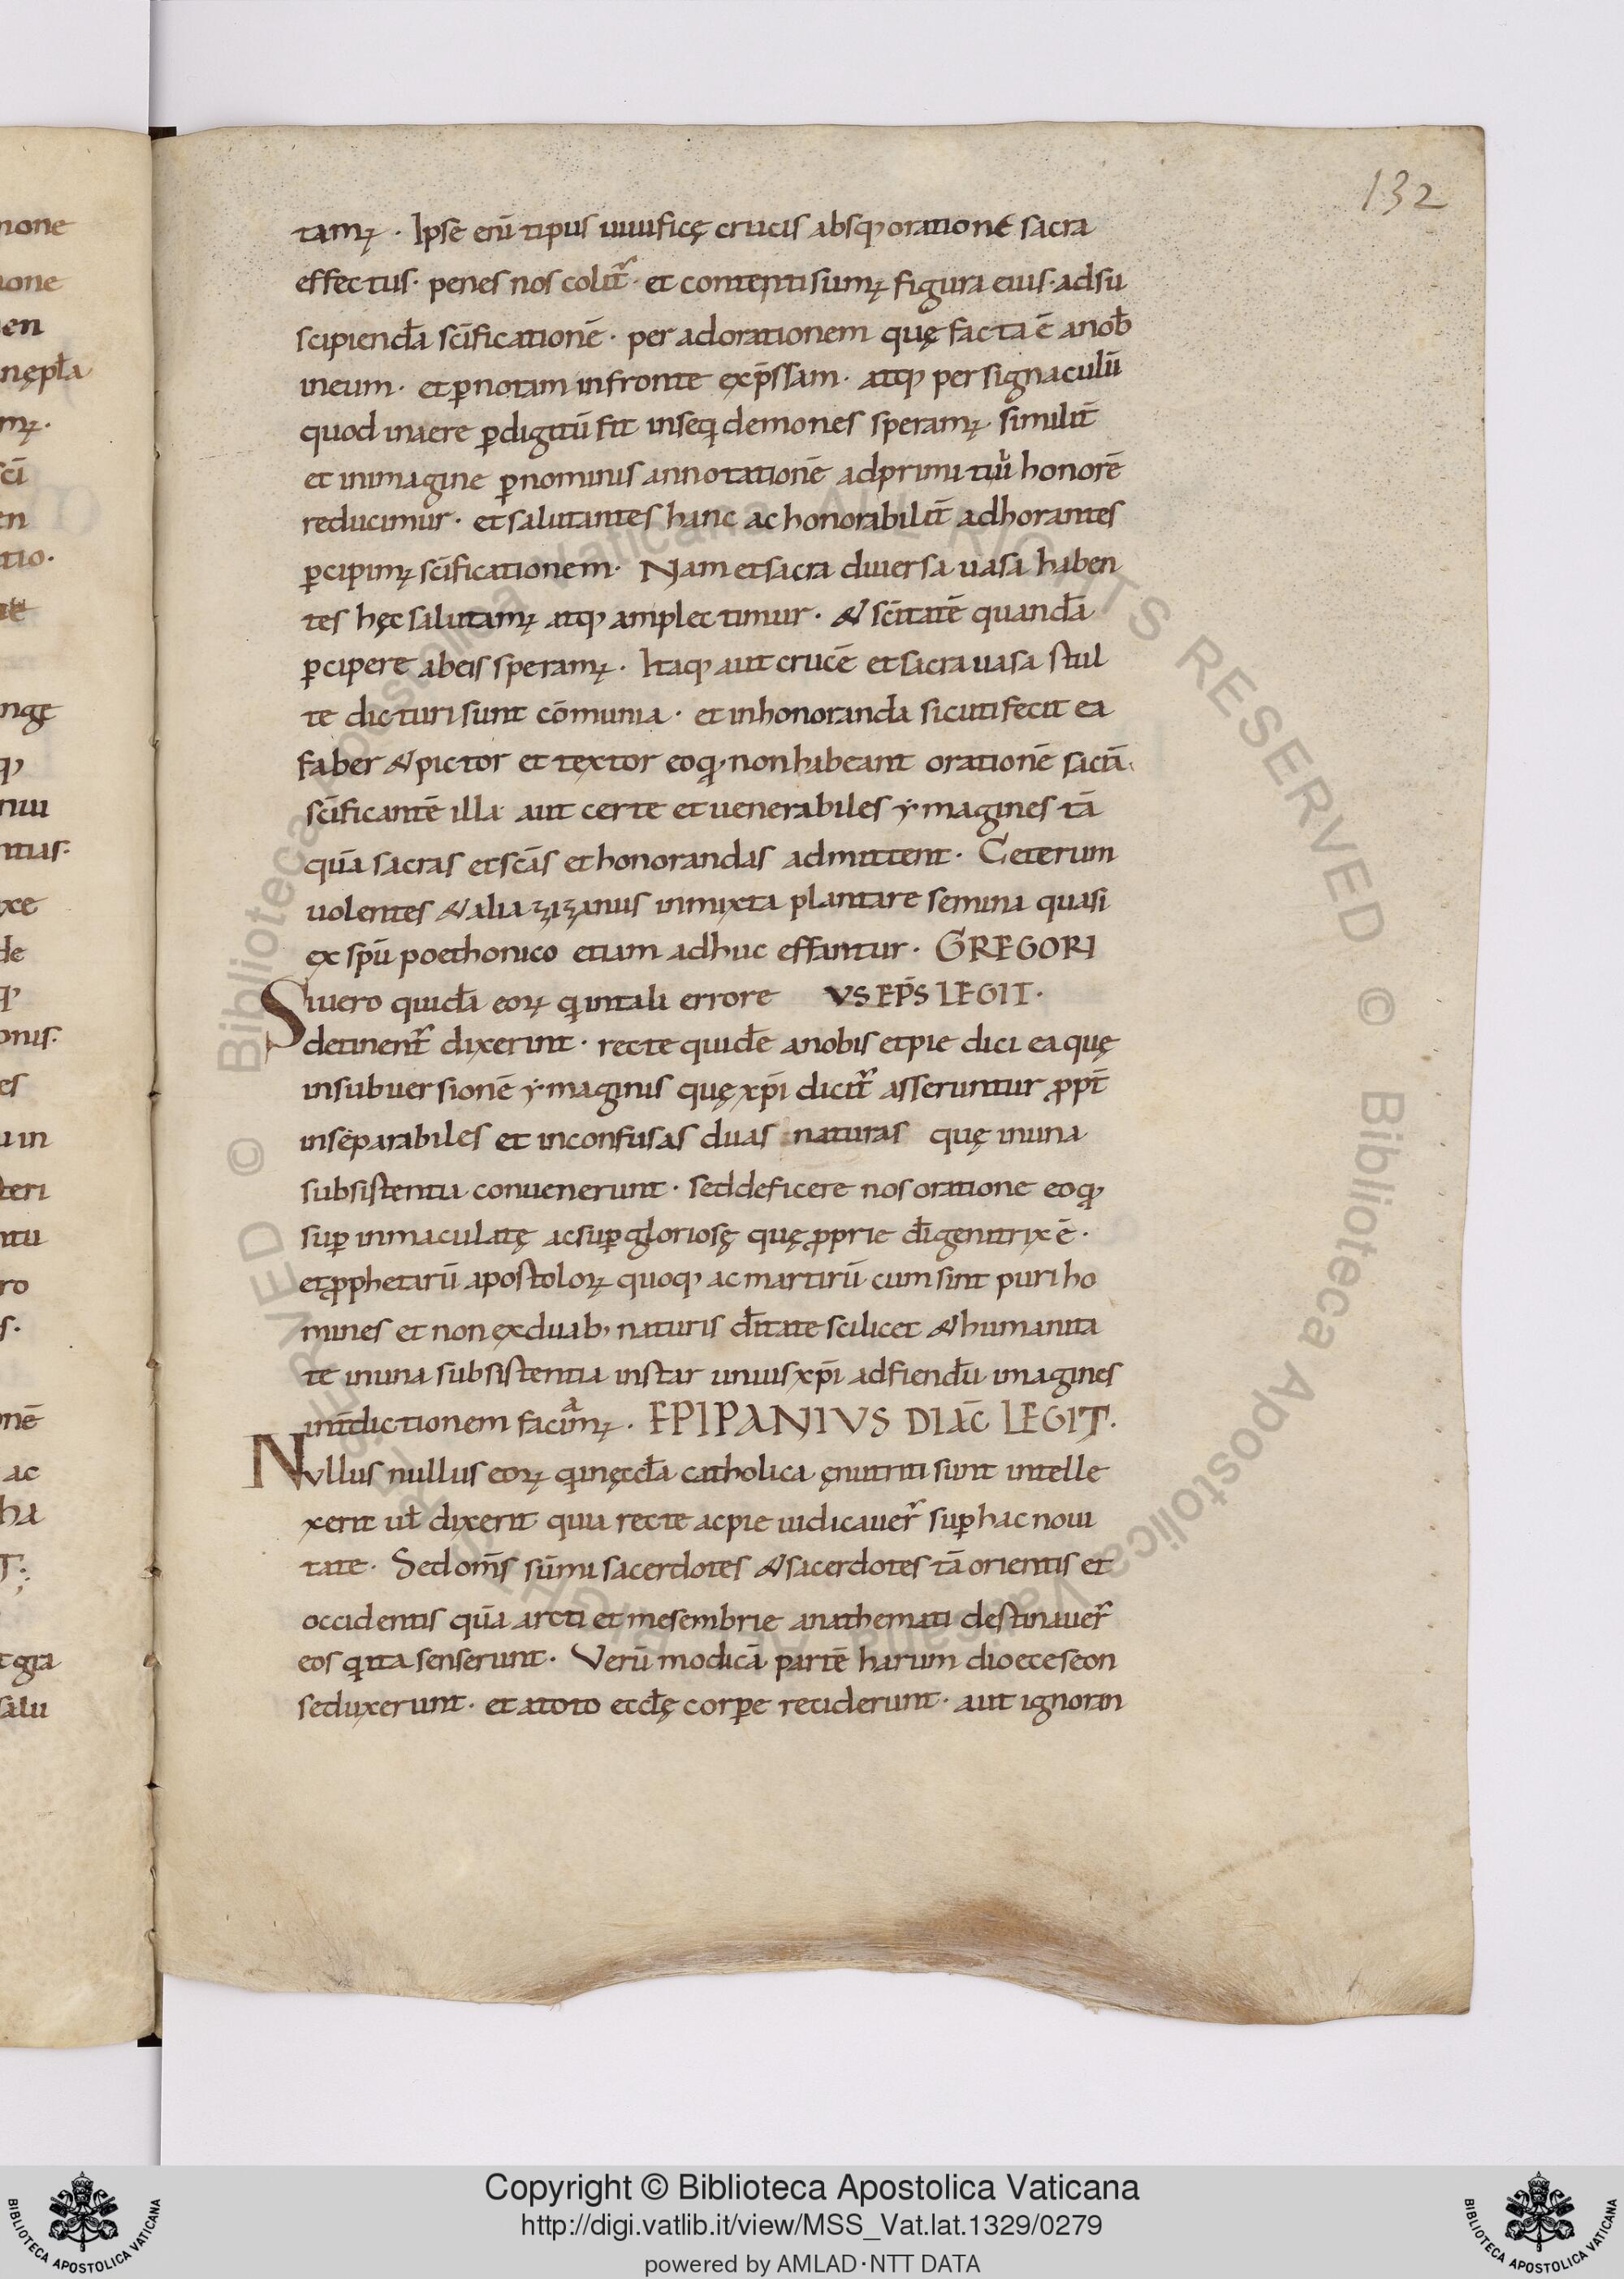 132
tamꝰ. Ipse eni tipus uiuificę crucis absq; oratione sacra
effectus. penes nos colit̃. et contenti sumꝰ figura eius. ad su
scipiendā sc̄ificationē. per adorationem quę facta ē a nob̄
in eum. et ꝑ notam in fronte exp̄ssam. atq; per signaculū
quod in aere ꝑ digitū fit inseq̄ demones speramꝰ. similit̄
et in imagine ꝑ nominis annotationē ad primitiuū honorē
reducimur. et salutantes hanc ac honorabilit̄ adhorantes
ꝑcipimꝰ sc̄ificationem. Nam et sacra diuersa uasa haben
tes hęc salutamꝰ atq; amplectimur. & sc̄itatē quandā
ꝑcipere ab eis speramꝰ. Itaq; aut crucē et sacra uasa stul
te dicturi sunt cōmunia. et inhonoranda sicuti fecit ea
faber & pictor et textor eo q̄ non habeant orationē sacrā
sc̄ificantē illa aut certe et uenerabiles ymagines tā
quā sacras et sc̄as et honorandas admittent. Ceterum
uolentes & alia zizaniis inmixta plantare semina quasi
ex sp̄u poethonico etiam adhuc effantur. GREGORI
Si uero quidā eoꝝ qui in tali errore VS EP̄S LEGIT.
detinent̃ dixerint. recte quidē a nobis et pie dici ea quę
in subuersionē ymaginis quę xp̄i dicit̃ asseruntur ꝓpt̄
inseparabiles et inconfusas duas naturas quę in una
subsistentia conuenerunt. sed deficere nos oratione eo q;
suꝑ inmaculatę ac suꝑ gloriosę quę ꝓprie dī genitrix ē.
et ꝓphetarū apostoloꝝ quoq; ac martirū cum sint puri ho
mines et non ex duab; naturis dītate scilicet & humanita
te in una subsistentia instar unius xp̄i ad fiendū imagines
int̄dictionem faciamꝰ. EPIPANIVS DIAC̄ LEGIT.
Nvllus nullus eoꝝ qui in ęccłā catholica ęnutriti sunt intelle
xerit uł dixerit quia recte ac pie iudicauer̃ suꝑ hac noui
tate. Sed om̄s sūmi sacerdotes & sacerdotes tā orientis et
occidentis quā arcti et mesembrie anathemati destinauer̃
eos qui ita senserunt. Verū modicā partē harum dioeceseon
seduxerunt. et a toto eccłę corꝑe reciderunt. aut ignoran
Copyright © Biblioteca Apostolica Vaticana
http://digi.vatlib.it/view/MSS_Vat.lat.1329/0279
powered by AMLAD·NTT DATA